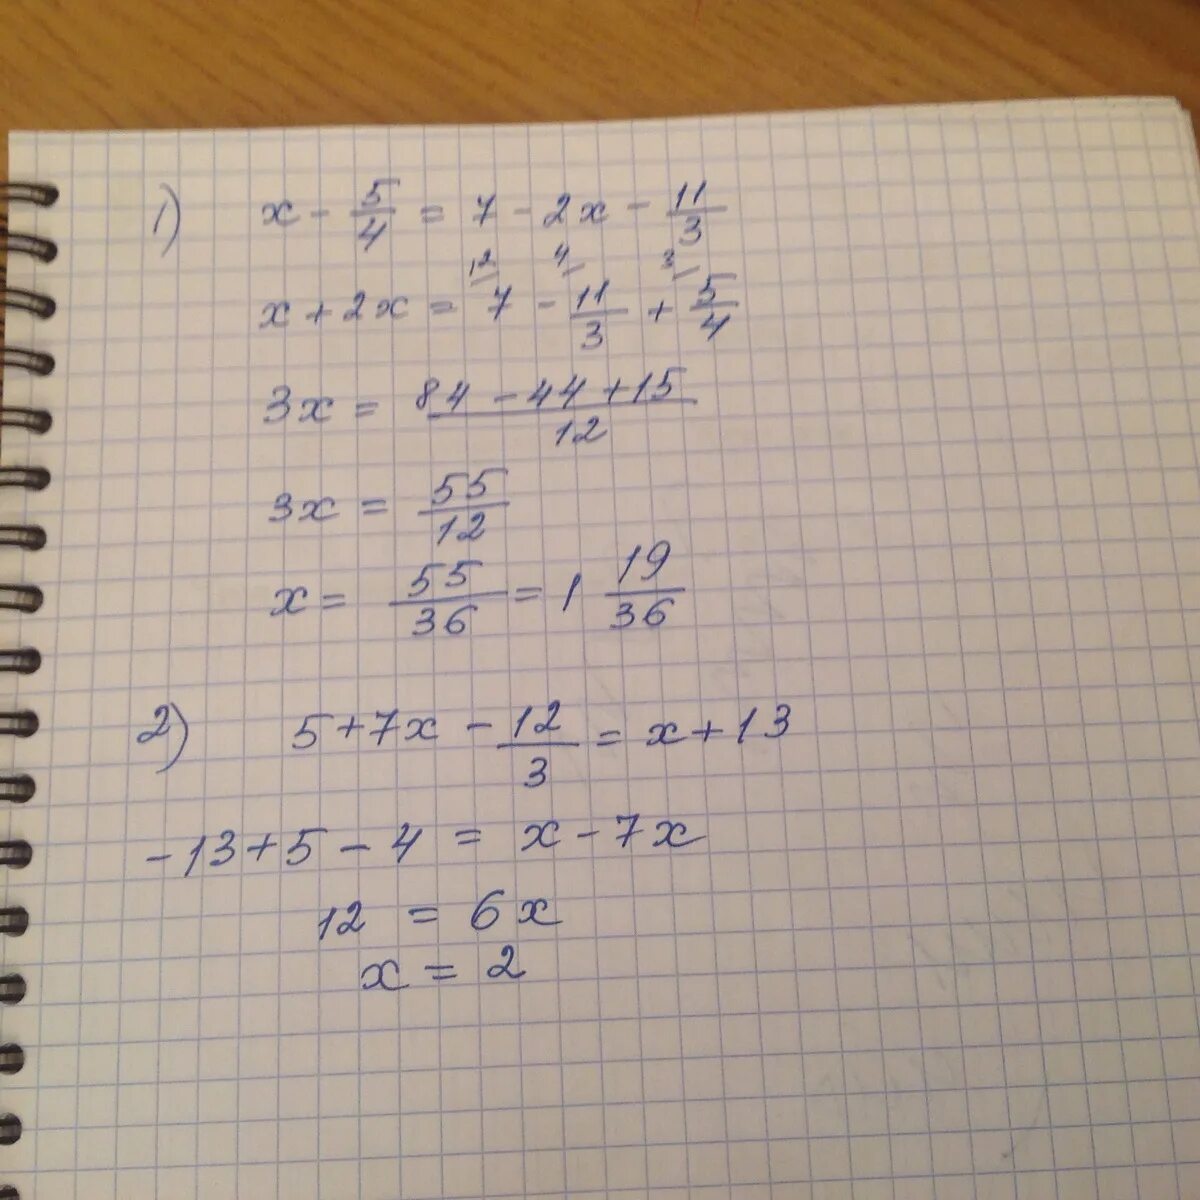 1) x - 5/4 = 7 - 2x - 11/3
12 4 3
x + 2x = 7 - 11/3 + 5/4
3x = 84 - 44 + 15/12
3x = 55/12
x = 55/36 = 1 19/36
2) 5 + 7x - 12/3 = x + 13
-13 + 5 - 4 = x - 7x
12 = 6x
x = 2